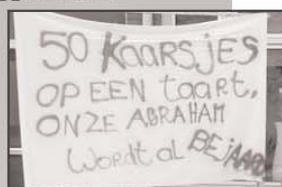 50 KAARSJES
OP EEN TAART,
ONZE ABRAHAM
Wordt al BEJAARD